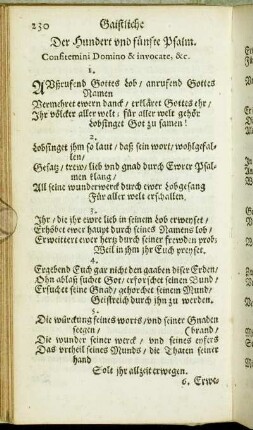 230 Gaistliche
Der Hundert vnd fünfte Psalm.
Confitemini Domino & invocate, &c.
1.
AVßrufend Gottes Lob, anrufend Gottes
Namen
Vermehret ewern danck, erkläret Gottes ehr,
Ihr völcker aller welt: für aller welt gehör
Lobsinget Got zu samen!
2.
Lobsinget ihm so laut, daß sein wort, wolgefal-
len,
Gesatz, trew, lieb vnd gnad durch Ewrer Psal-
men klang,
All seine wunderwerck durch ewer Lobgesang
Für aller welt erschallen.
3.
Ihr, die ihr ewre lieb in seinem Lob erweyset,
Erhöbet ewer haupt durch seines Namens lob,
Erweittert ewer hertz durch seiner frewden prob,
Weil in ihm ihr Euch preyset.
4.
Ergebend Euch gar nicht den gaaben diser Erden,
Ohn ablaß suchet Got, erforschet seinen Bund,
Ersuchet seine Gnad, gehorchet seinem Mund,
Geistreich durch ihn zu werden.
5.
Die würckung seines worts, vnd seiner Gnaden
seegen, (brand,
Die wunder seiner werck, vnd seines eyfers
Das vrtheil seines Munds, die Thaten seiner
hand
Solt ihr allzeit erwegen.
6. Erwe-